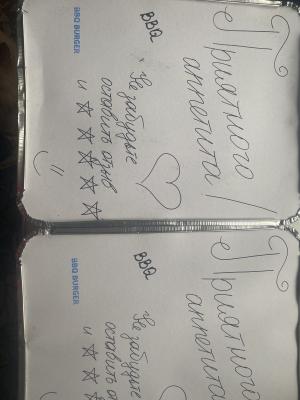 Приятного
аппетита!
BBQ
Не забудьте
оставить отзыв
и ☆☆☆☆☆
BBQ BURGER
Приятного
аппетита
BBQ
Не забудьте
оставить от
и ☆☆☆
BBQ BURGER